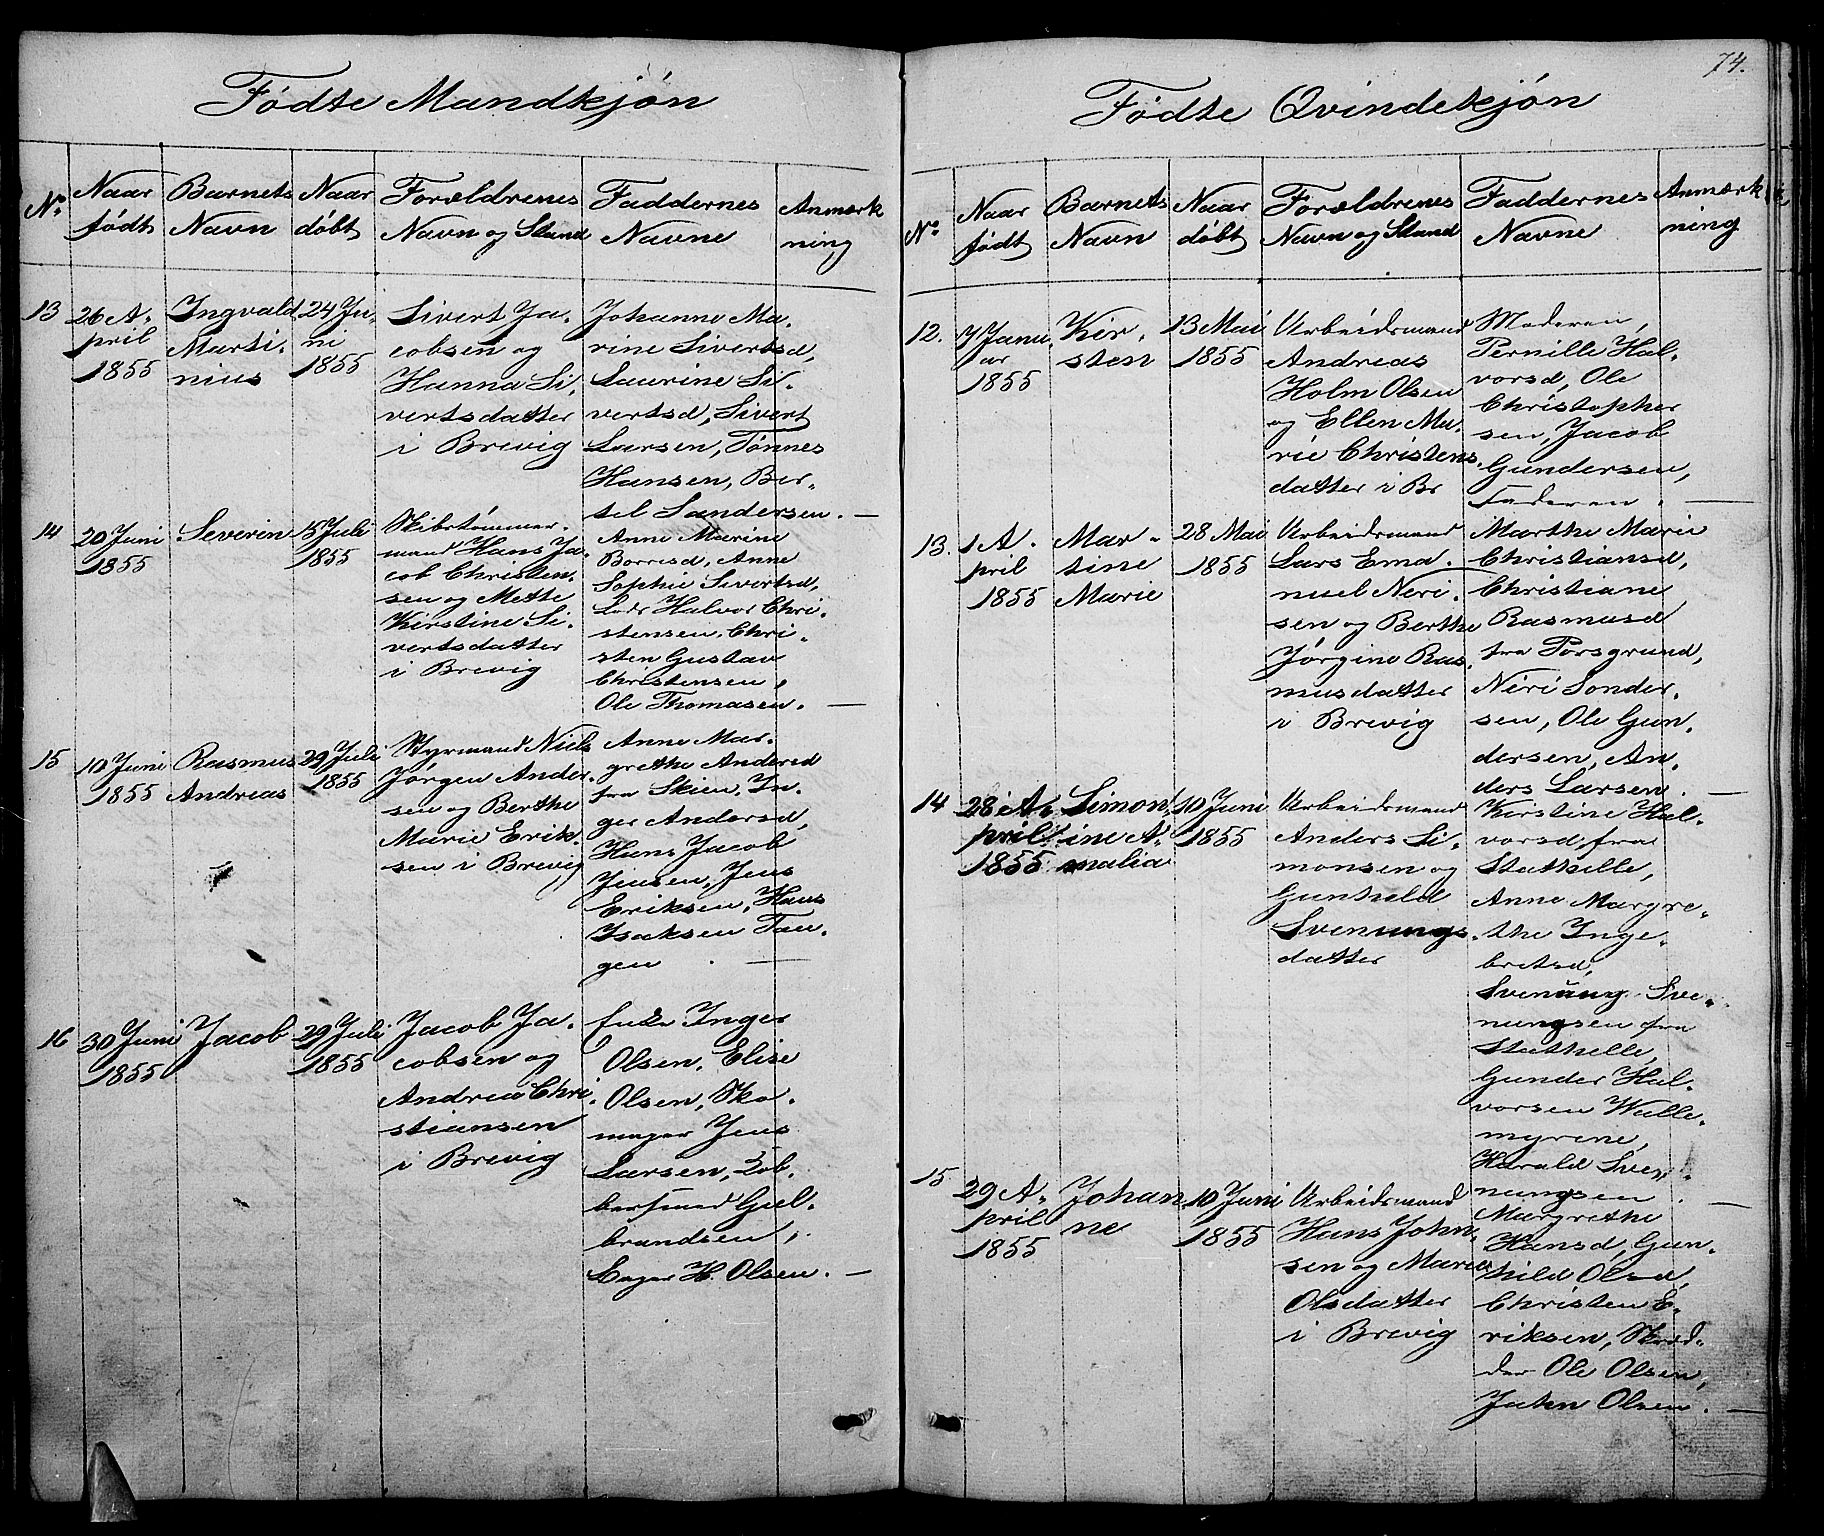 Fødte Mandkjøn
No
Naar født
Barnets Navn
Naar døbt
Forældrenes Navn og Stand
Faddernes Navne
Anmærkning
13
26 A-
pril
1855
Ingvald
Marti-
nius
24 Ju-
ni
1855
Sivert Ja-
cobsen og
Hanna Si-
vertsdatter
i Brevig
Johanne Ma-
rine Sivertsd,
Laurine Si-
vertsd, Sivert
Larsen, Tønnes
Hansen, Ber-
tel Sandersen. —
14
20 Juni
1855
Severin
15 Juli
1855
Skibstømmer-
mand Hans Ja-
cob Christen-
sen og Mette
Kirstine Si-
vertsdatter
i Brevig
Anne Marine
Borresd, Anne
Sophie Sivertsd,
Lods Halvor Chri-
stensen, Chri-
sten Gustav
Christensen,
Ole Thomasen. —
15
10 Juni
1855
Rasmus
Andreas
29 Juli
1855
Styrmand Niels
Jørgen Ander-
sen og Berthe
Marie Erik-
sen i Brevig
Anne Mar-
grethe Andersd
fra Skien, In-
ger Andersd,
Hans Jacob
Jensen, Jens
Eriksen, Hans
Isaksen Tan-
gen . —
16
30 Juni
1855
Jacob
29 Juli
1855
Jacob Ja-
cobsen og
Andrea Chri-
stiansen
i Brevig
Enke Inger
Olsen, Elise
Olsen, Sko-
mager Jens
Larsen,
Gul-
brandsen,
Bager H. Olsen. —
74.
Fødte Qvindekjøn
No
Naar født
Barnets Navn
Naar døbt
Forældrenes Navn og Stand
Faddernes Navne
Anmærkning
12.
7 Janu-
ar
1855
Kir-
sten
13 Mai
1855
Arbeidsmand
Andreas
Holm Olsen
og Ellen Ma-
rie Christens-
datter i Br
Moderen,
Pernille Hal-
vorsd, Ole
Christopher
sen, Jacob
Gundersen,
Faderen . —
13.
1 A-
pril
1855
Mar-
tine
Marie
28 Mai
1855
Arbeidsmand
Lars Ema-
nuel Neri-
sen og Berthe
Jørgine Ras-
musdatter
i Brevig
Marthe Marie
Christiansd,
Christiane
Rasmusd
fra Porsgrund,
Neri Sonder-
sen, Ole Gun-
dersen, An-
ders Larsen . —
14
28 A-
pril
1855
Simon-
ine A-
malia
10 Juni
1855
Arbeidsmand
Anders Si-
monsen og
Gunhild
Svenungs-
datter
Kirstine Hal-
vorsd fra
Stathelle,
Anne Margre-
the Inge-
bretsd,
Svenung Sve-
nungsen fra
Stathelle,
Gunder Hal-
vorsen Walle-
myrene,
Harald Sve-
nungsen . —
15
29 A-
pril
1855
Johan-
ne
10 Juni
1855
Arbeidsmand
Hans John-
sen og Maren
Olsdatter
i Brevig
Margrethe
Hansd, Gun-
hild Olsd,
Christen E-
riksen, Skræd-
der Ole Olsen,
John Olsen. —